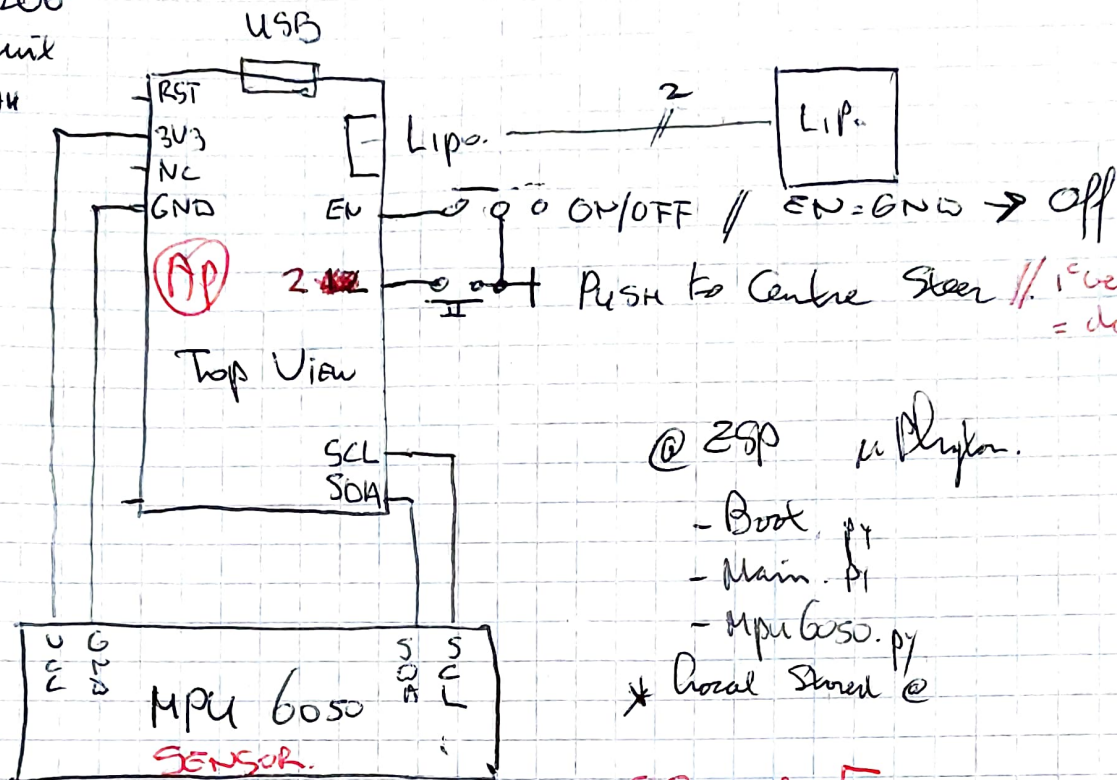 USB
RST
3V3
NC
GND
Lipo.
2
LiP.
EN
ON/OFF // EN=GND → Off
AP
2
Push to Centre Steer //
Top View
SCL
SDA
@ ESP μ Phyton.
- Boot.py
- Main.py
- Mpu6050.py
* Local Stored @
VCC
GND
SDA
SCL
MPU 6050
SENSOR.